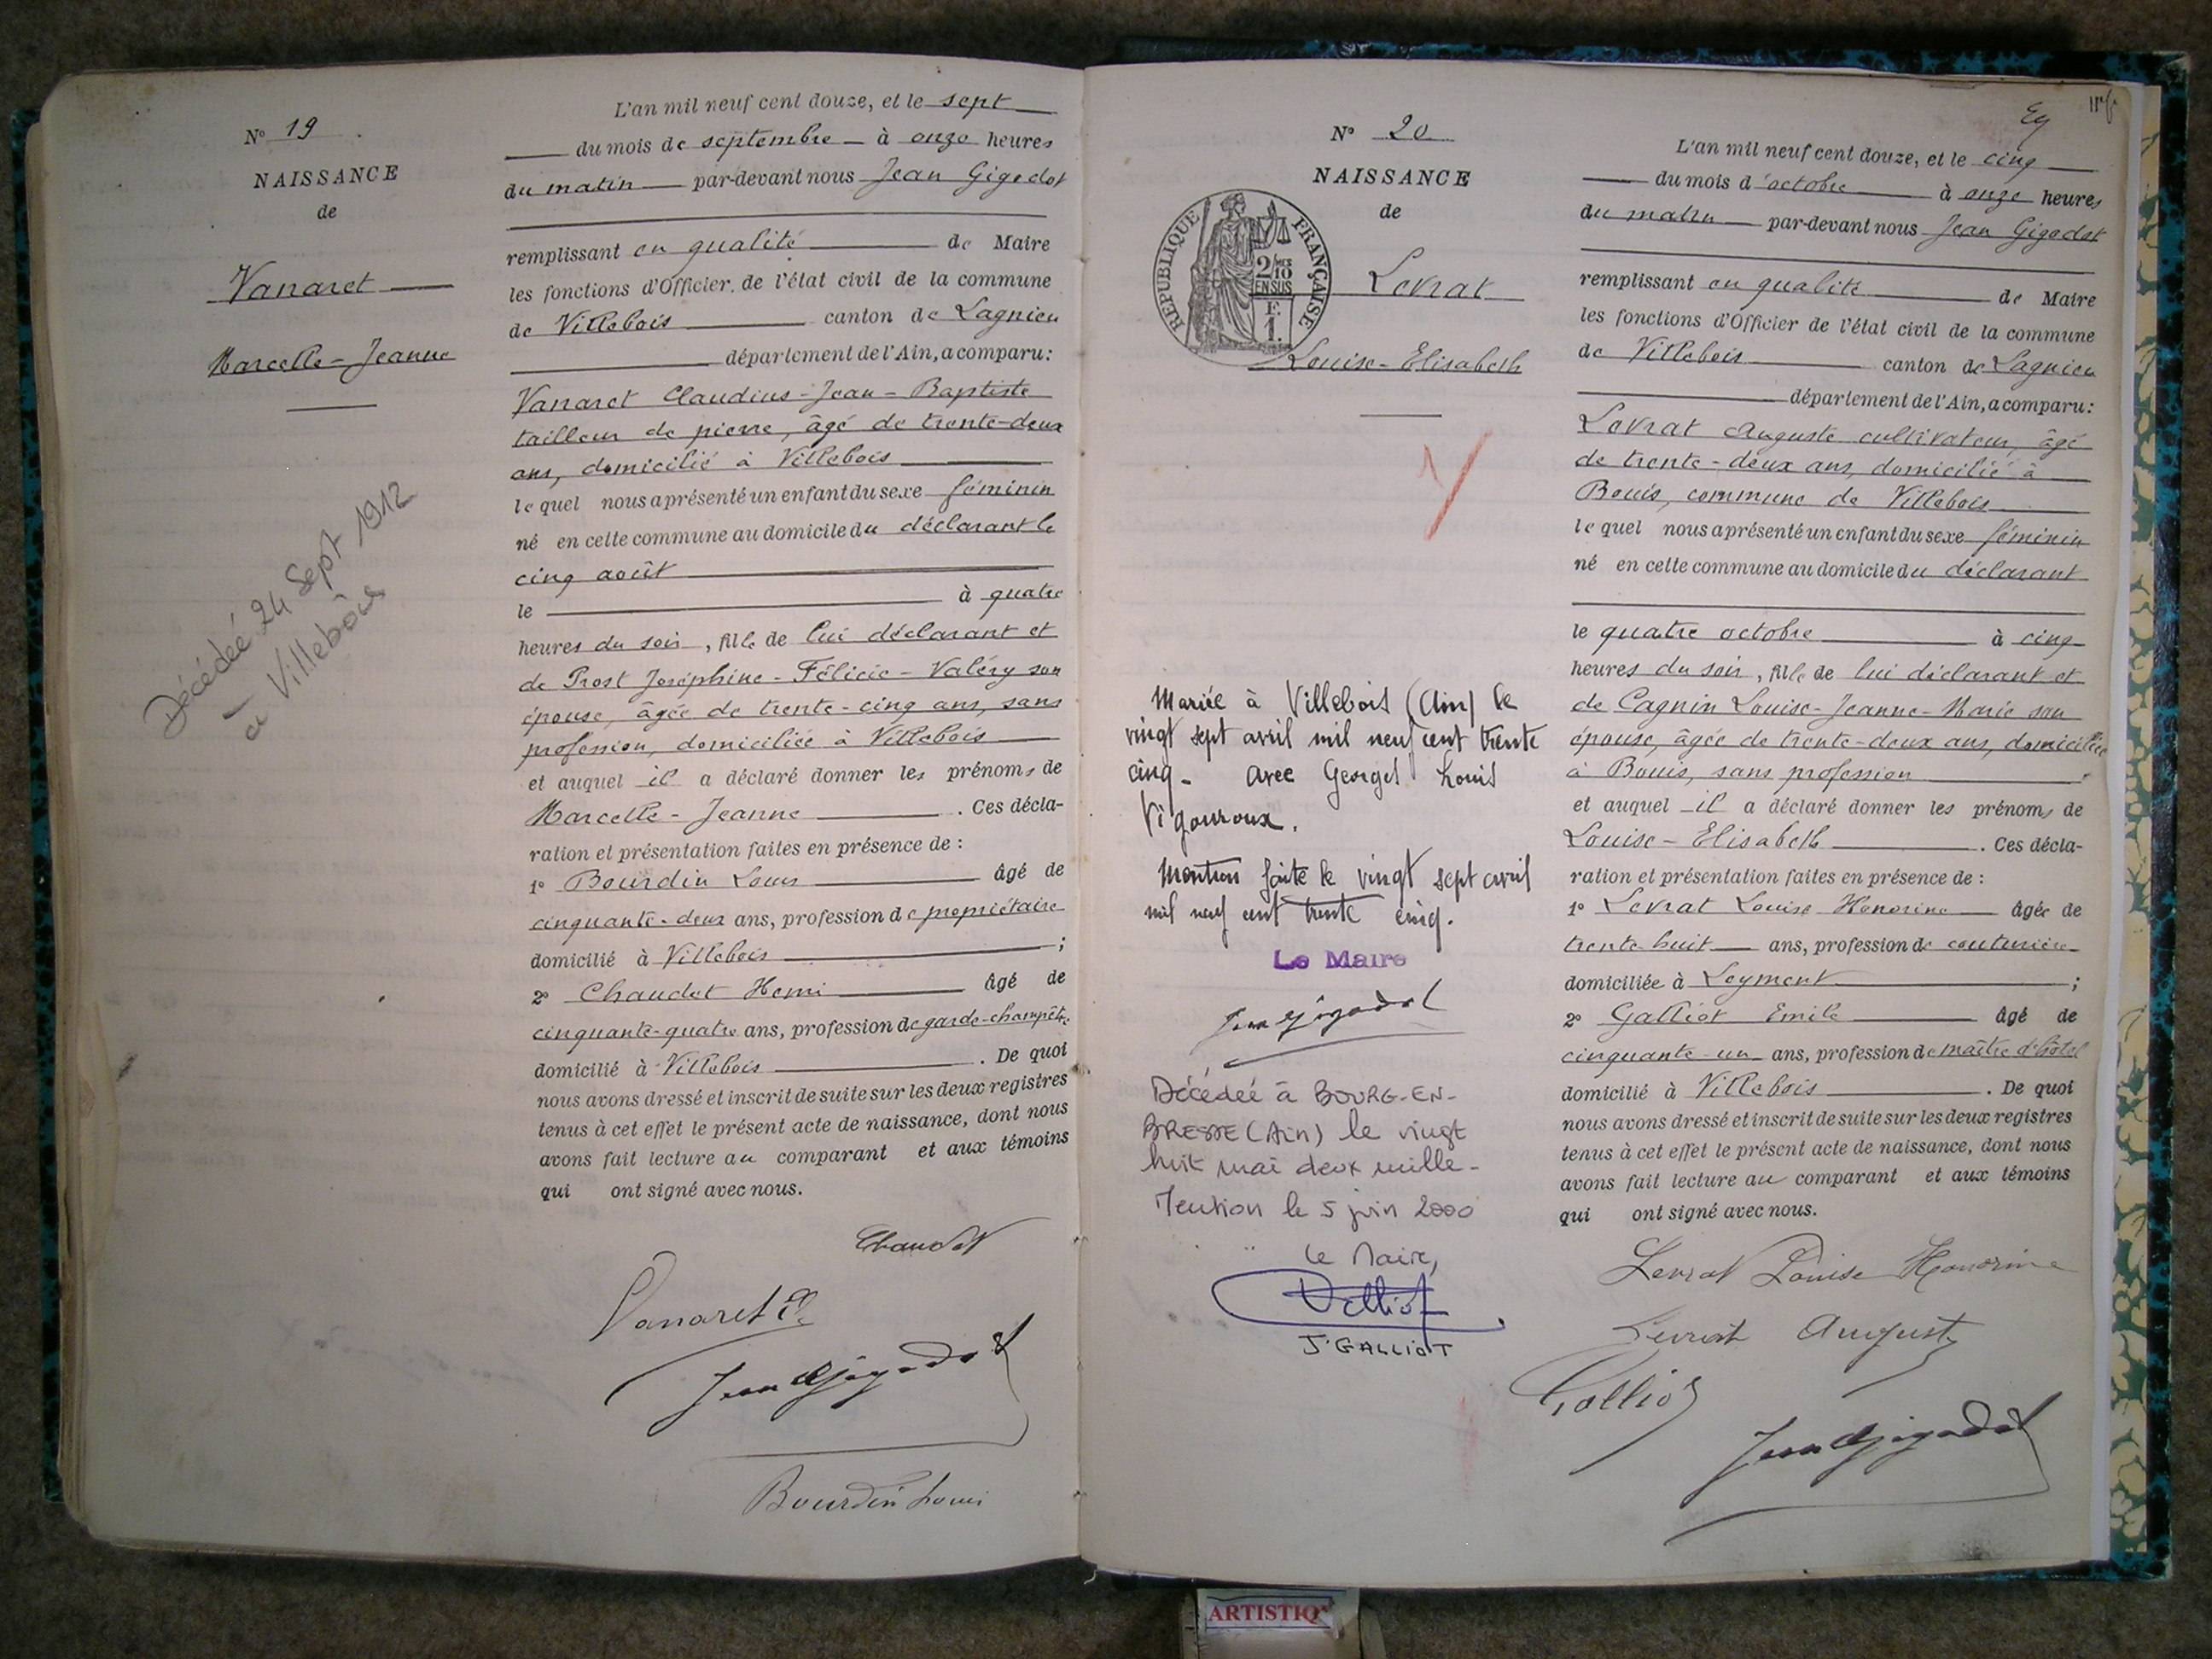 N° 19
NAISSANCE
de
Vanaret
Marcelle-Jeanne
Décédée 24 Sept 1912
à Villebois
L'an mil neuf cent douze, et le sept
du mois de septembre à onze heures
du matin par-devant nous Jean Gigodot
remplissant en qualité de Maire
les fonctions d'Officier de l'état civil de la commune
de Villebois canton de Lagnieu
département de l'Ain, a comparu:
Vanaret Claudius-Jean-Baptiste
tailleur de pierre, âgé de trente-deux
ans, domicilié à Villebois
le quel nous a présenté un enfant du sexe féminin
né en cette commune au domicile du déclarant le
cinq août
le à quatre
heures du soir, fille de lui déclarant et
de Prost Joséphine-Félicie-Valéry son
épouse, âgée de trente-cinq ans, sans
profession, domiciliée à Villebois
et auquel il a déclaré donner les prénoms de
Marcelle-Jeanne. Ces décla-
ration et présentation faites en présence de :
1° Bourdin Louis âgé de
cinquante-deux ans, profession de propriétaire
domicilié à Villebois ;
2° Chaudet Henri âgé de
cinquante-quatre ans, profession de garde-champêtre
domicilié à Villebois. De quoi
nous avons dressé et inscrit de suite sur les deux registres
tenus à cet effet le présent acte de naissance, dont nous
avons fait lecture au comparant et aux témoins
qui ont signé avec nous.
Chaudet
Vanaret Cl
Jean Gigodot
Bourdin Louis
N° 20
NAISSANCE
de
REPUBLIQUE FRANÇAISE
2/10
EN SUS
F.
1.
Levrat
Louise-Elisabeth
Mariée à Villebois (Ain) le
vingt sept avril mil neuf cent trente
cinq - avec Georges Louis
Vigouroux.
Mention faite le vingt sept avril
mil neuf cent trente cinq.
Le Maire
Jean Gigodot
Décédée à BOURG-EN-
BRESSE (Ain) le vingt
huit mai deux mille -
Mention le 5 juin 2000
Le Maire,
Galliot
J. GALLIOT
L'an mil neuf cent douze, et le cinq
du mois d'octobre à onze heures
du matin par-devant nous Jean Gigodot
remplissant en qualité de Maire
les fonctions d'Officier de l'état civil de la commune
de Villebois canton de Lagnieu
département de l'Ain, a comparu:
Levrat Auguste cultivateur, âgé
de trente-deux ans, domicilié à
Bouis, commune de Villebois
le quel nous a présenté un enfant du sexe féminin
né en cette commune au domicile du déclarant
le quatre octobre à cinq
heures du soir, fille de lui déclarant et
de Cagnin Louise-Jeanne-Marie son
épouse, âgée de trente-deux ans, domiciliée
à Bouis, sans profession
et auquel il a déclaré donner les prénoms de
Louise-Elisabeth. Ces décla-
ration et présentation faites en présence de :
1° Levrat Louise Honorine âgée de
trente-huit ans, profession de couturière
domiciliée à Leyment ;
2° Galliot Emile âgé de
cinquante-un ans, profession de maître d'hôtel
domicilié à Villebois. De quoi
nous avons dressé et inscrit de suite sur les deux registres
tenus à cet effet le présent acte de naissance, dont nous
avons fait lecture au comparant et aux témoins
qui ont signé avec nous.
Levrat Louise Honorine
Levrat Auguste
Galliot
Jean Gigodot
ARTISTIQ